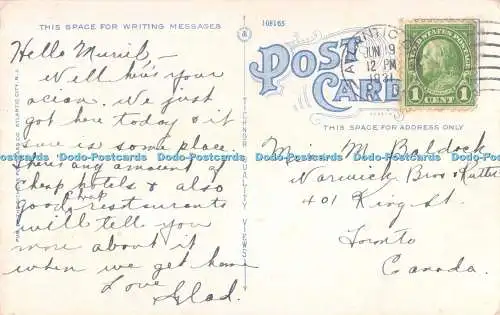 THIS SPACE FOR WRITING MESSAGES
108165
Hello Muriel,-
Well here's your
ocian. We just
got here today & it
sure is some place.
there's any amount of
cheap hotels & also
good cheap restaurants
will tell you
more about it
when we get home
Love
Glad.
VIENNER QUALITY VIEWS
POST
CARD
ATLANTIC
JUN 19
12 PM
1931
UNITED STATES POSTAGE
FRANKLIN
1 CENT 1
THIS SPACE FOR ADDRESS ONLY
Miss M. Baldock
Warwick Bros & Rutter
401 King St.
Toronto
Canada.
Dodo-Postcards Dodo-Postcards Dodo-Postcards Dodo-Postcards Dodo-Postcards Dodo-Postcards